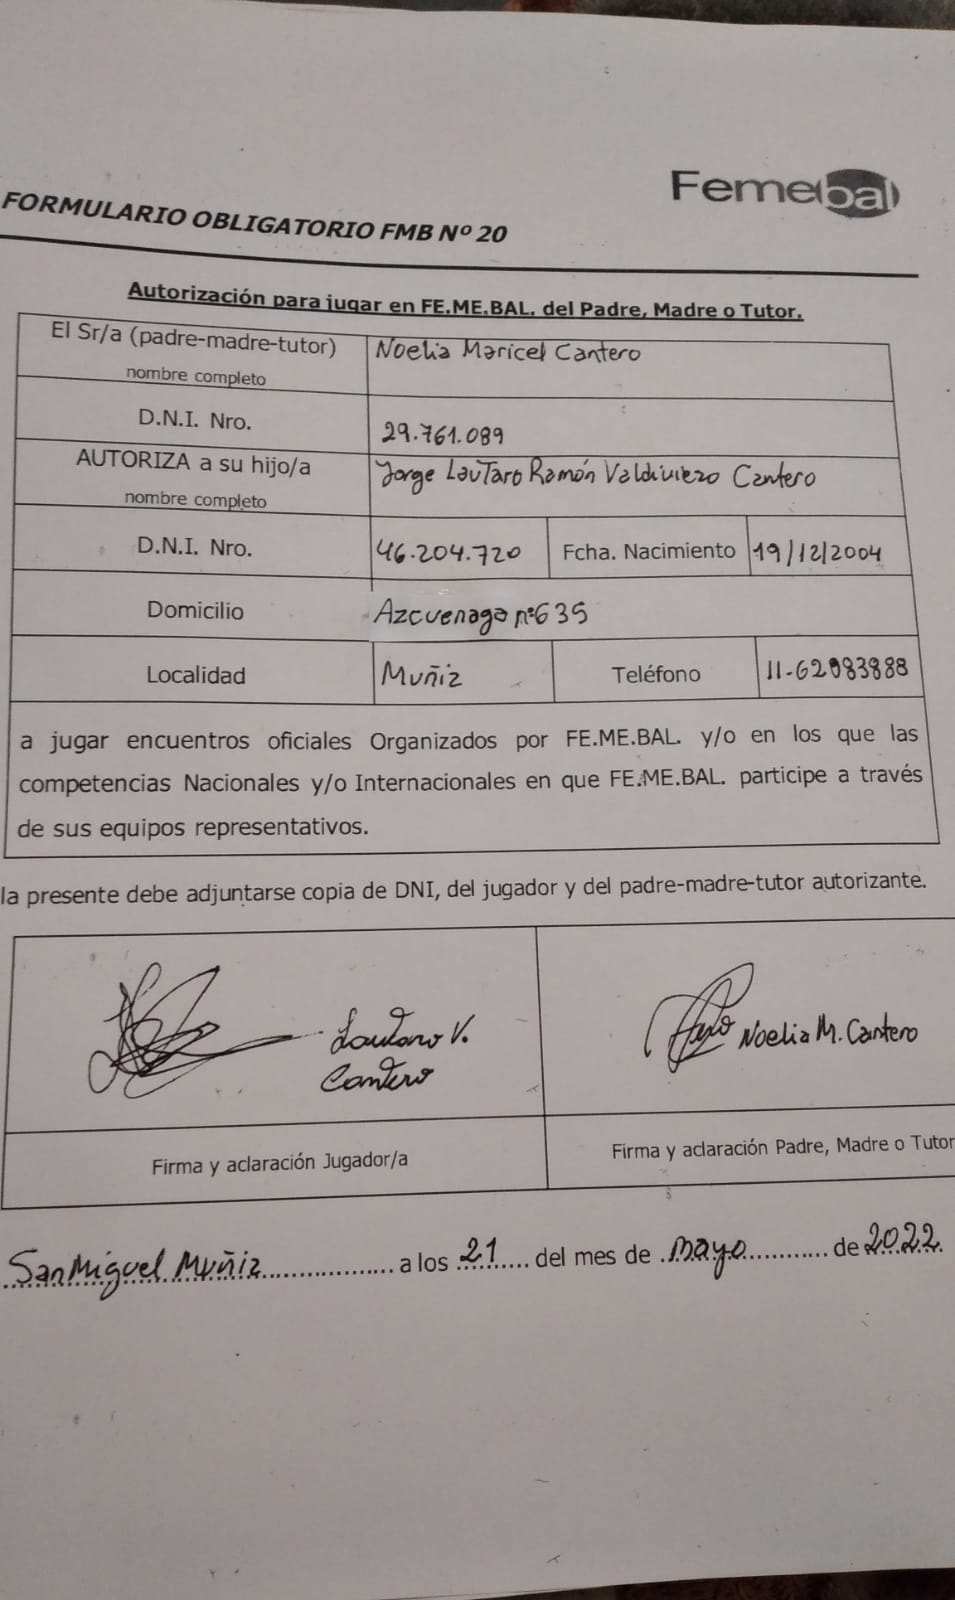 Femebal
FORMULARIO OBLIGATORIO FMB Nº 20
Autorización para jugar en FE.ME.BAL. del Padre, Madre o Tutor.
El Sr/a (padre-madre-tutor) Noelia Maricel Cantero
nombre completo
D.N.I. Nro. 29.761.089
AUTORIZA a su hijo/a Jorge Lautaro Ramón Valdiviezo Cantero
nombre completo
D.N.I. Nro. 46.204.720 Fcha. Nacimiento 19/12/2004
Domicilio Azcuenaga nº 635
Localidad Muñiz Teléfono 11-62083888
a jugar encuentros oficiales Organizados por FE.ME.BAL. y/o en los que las
competencias Nacionales y/o Internacionales en que FE.ME.BAL. participe a través
de sus equipos representativos.
la presente debe adjuntarse copia de DNI, del jugador y del padre-madre-tutor autorizante.
Lautaro V. Noelia M. Cantero
Cantero
Firma y aclaración Jugador/a Firma y aclaración Padre, Madre o Tutor
San Miguel Muñiz a los 21 del mes de mayo de 2022.